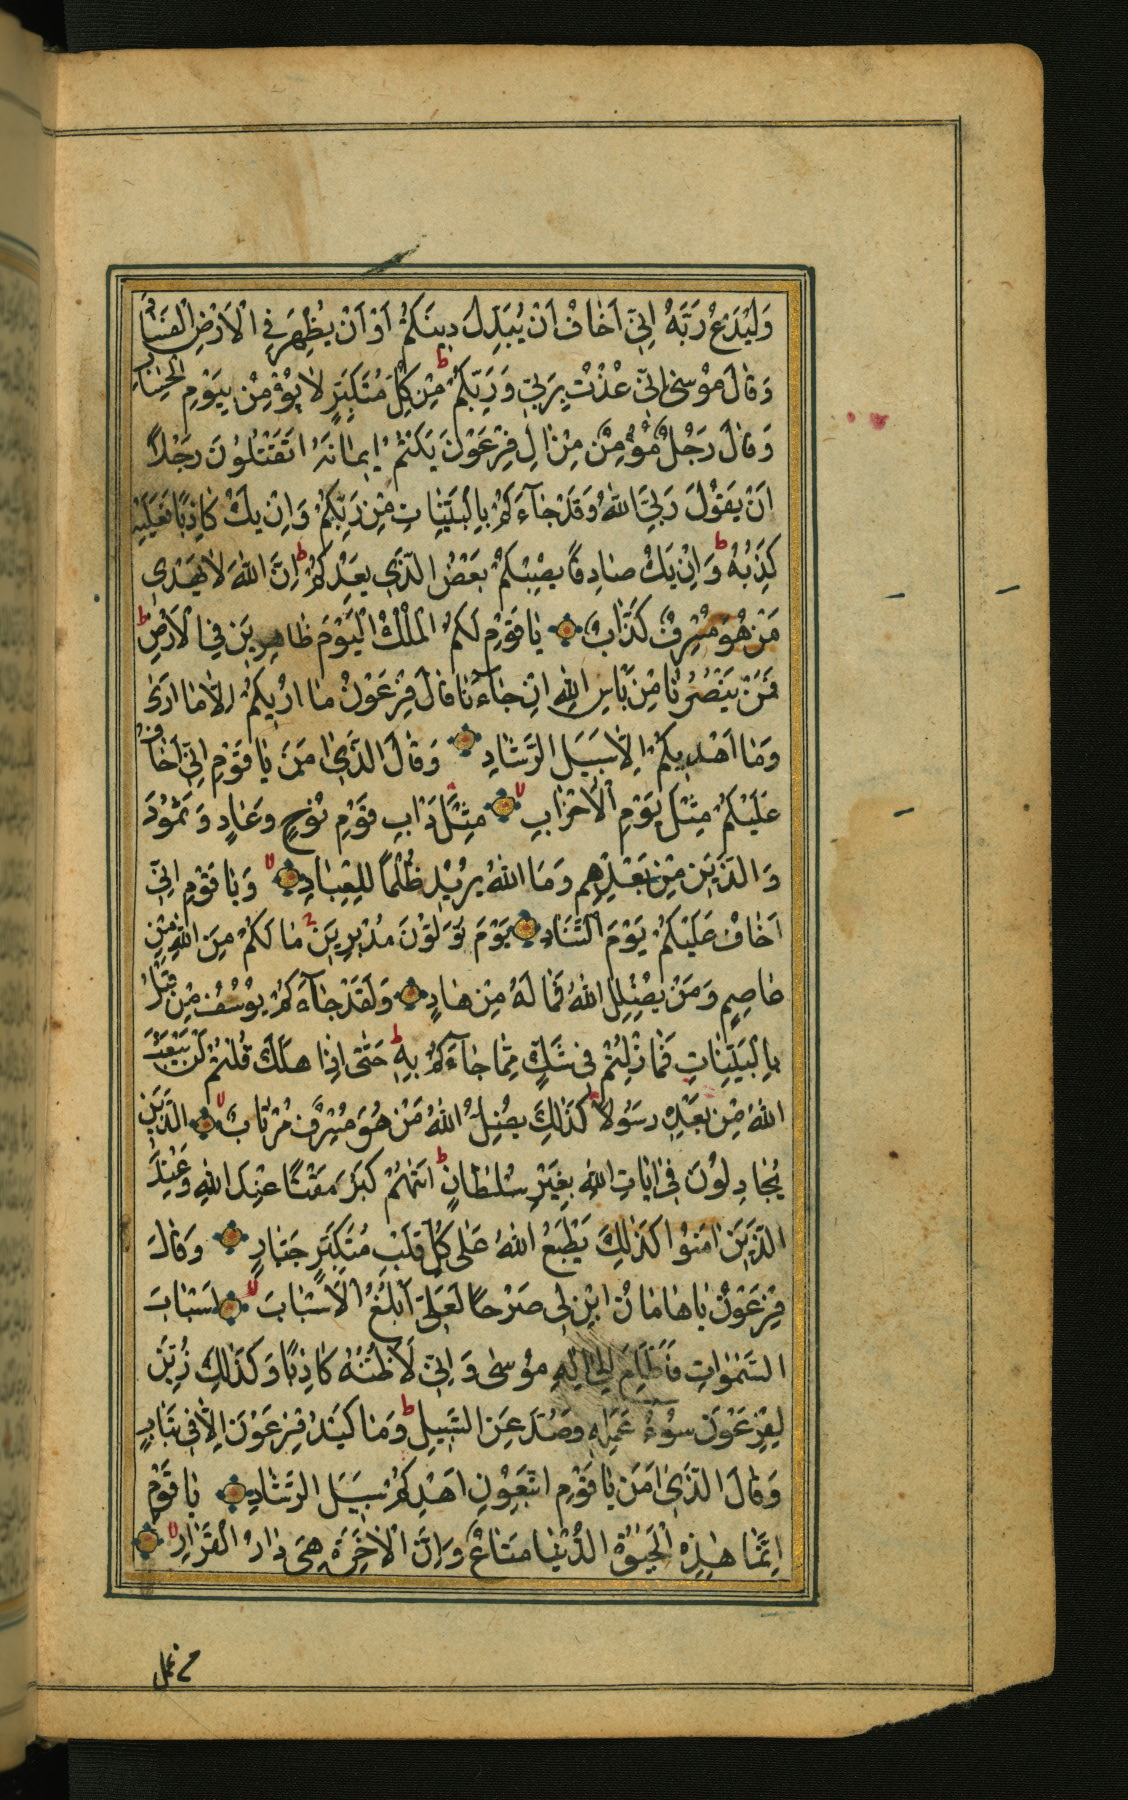 وَلْيَدْعُ رَبَّهُ اِنِّى اَخَافُ اَنْ يُبَدِّلَ دِينَكُمْ اَوْ اَنْ يُظْهِرَ فِى الْاَرْضِ الْفَسَادَ
وَقَالَ مُوْسٰى اِنِّى عُذْتُ بِرَبِّى وَرَبِّكُمْ ط مِنْ كُلِّ مُتَكَبِّرٍ لَا يُؤْمِنُ بِيَوْمِ الْحِسَابِ
وَقَالَ رَجُلٌ مُؤْمِنٌ مِنْ اٰلِ فِرْعَوْنَ يَكْتُمُ اِيمَانَهُ اَتَقْتُلُوْنَ رَجُلًا
اَنْ يَقُوْلَ رَبِّىَ اللّٰهُ وَقَدْ جَآءَكُمْ بِالْبَيِّنَاتِ مِنْ رَبِّكُمْ وَاِنْ يَكُ كَاذِبًا فَعَلَيْهِ
كَذِبُهُ ط وَاِنْ يَكُ صَادِقًا يُصِبْكُمْ بَعْضُ الَّذِى يَعِدُكُمْ ط اِنَّ اللّٰهَ لَا يَهْدِى
مَنْ هُوَ مُسْرِفٌ كَذَّابٌ يَا قَوْمِ لَكُمُ الْمُلْكُ الْيَوْمَ ظَاهِرِينَ فِى الْاَرْضِ ط
فَمَنْ يَنْصُرُنَا مِنْ بَاْسِ اللّٰهِ اِنْ جَآءَنَا قَالَ فِرْعَوْنُ مَا اُرِيكُمْ اِلَّا مَا اَرٰى
وَمَا اَهْدِيكُمْ اِلَّا سَبِيلَ الرَّشَادِ وَقَالَ الَّذِى اٰمَنَ يَا قَوْمِ اِنِّى اَخَافُ
عَلَيْكُمْ مِثْلَ يَوْمِ الْاَحْزَابِ لا مِثْلَ دَاْبِ قَوْمِ نُوْحٍ وَعَادٍ وَثَمُوْدَ
وَالَّذِينَ مِنْ بَعْدِهِمْ وَمَا اللّٰهُ يُرِيْدُ ظُلْمًا لِلْعِبَادِ لا وَيَا قَوْمِ اِنِّى
اَخَافُ عَلَيْكُمْ يَوْمَ التَّنَادِ يَوْمَ تُوَلُّوْنَ مُدْبِرِينَ مَا لَكُمْ مِنَ اللّٰهِ مِنْ
عَاصِمٍ وَمَنْ يُضْلِلِ اللّٰهُ فَمَا لَهُ مِنْ هَادٍ وَلَقَدْ جَآءَكُمْ يُوْسُفُ مِنْ قَبْلُ
بِالْبَيِّنَاتِ فَمَا زِلْتُمْ فِى شَكٍّ مِمَّا جَآءَكُمْ بِهِ ط حَتّٰى اِذَا هَلَكَ قُلْتُمْ لَنْ يَبْعَثَ
اللّٰهُ مِنْ بَعْدِهِ رَسُولًا ط كَذٰلِكَ يُضِلُّ اللّٰهُ مَنْ هُوَ مُسْرِفٌ مُرْتَابٌ لا الَّذِينَ
يُجَادِلُوْنَ فِى اٰيَاتِ اللّٰهِ بِغَيْرِ سُلْطَانٍ ط اَتٰىهُمْ كَبُرَ مَقْتًا عِنْدَ اللّٰهِ وَعِنْدَ
الَّذِينَ اٰمَنُوْا كَذٰلِكَ يَطْبَعُ اللّٰهُ عَلٰى كُلِّ قَلْبِ مُتَكَبِّرٍ جَبَّارٍ وَقَالَ
فِرْعَوْنُ يَا هَامَانُ ابْنِ لِى صَرْحًا لَعَلِّى اَبْلُغُ الْاَسْبَابَ لا اَسْبَابَ
السَّمٰوَاتِ فَاَطَّلِعَ اِلٰى اِلٰهِ مُوْسٰى وَاِنِّى لَاَظُنُّهُ كَاذِبًا وَكَذٰلِكَ زُيِّنَ
لِفِرْعَوْنَ سُوْءُ عَمَلِهِ وَصُدَّ عَنِ السَّبِيلِ ط وَمَا كَيْدُ فِرْعَوْنَ اِلَّا فِى تَبَابٍ
وَقَالَ الَّذِى اٰمَنَ يَا قَوْمِ اتَّبِعُوْنِ اَهْدِكُمْ سَبِيلَ الرَّشَادِ يَا قَوْمِ
اِنَّمَا هٰذِهِ الْحَيٰوةُ الدُّنْيَا مَتَاعٌ وَاِنَّ الْاٰخِرَةَ هِىَ دَارُ الْقَرَارِ لا
من عمل